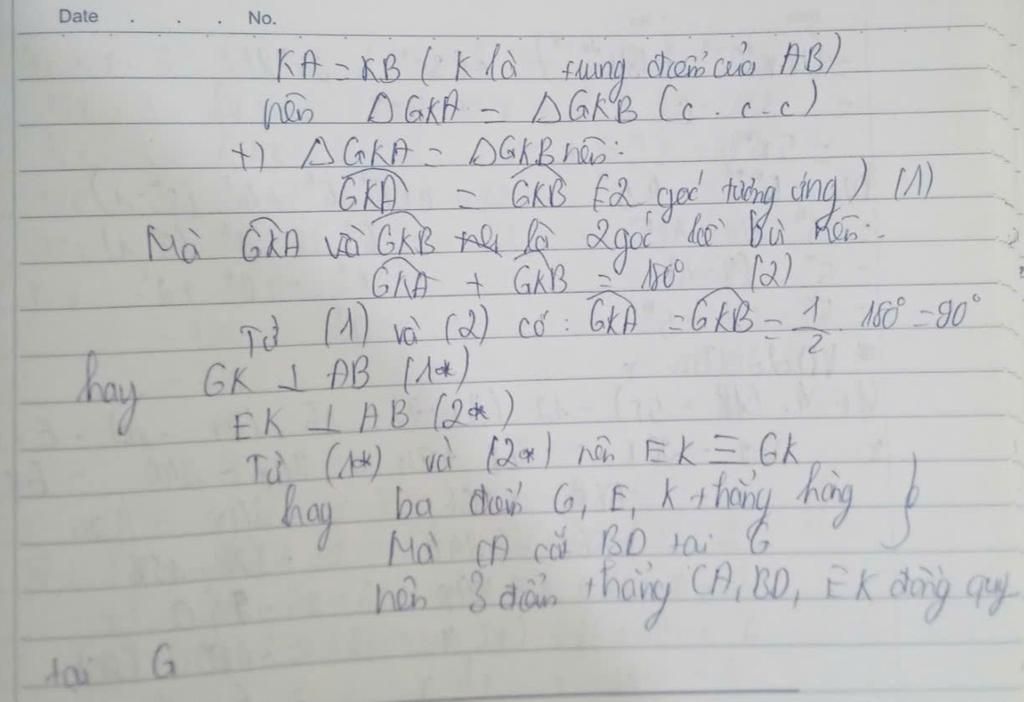 Date . . . No.
KA = KB ( K là trung điểm của AB)
nên ΔGKA = ΔGKB (c.c.c)
+) ΔGKA = ΔGKB nên:
GKA = GKB (2 góc tương ứng) (1)
Mà GKA và GKB là 2 góc kề bù nên:
GKA + GKB = 180° (2)
Từ (1) và (2) có: GKA = GKB = 1/2 . 180° = 90°
hay GK ⊥ AB (1*)
EK ⊥ AB (2*)
Từ (1*) và (2*) nên EK ≡ GK
hay ba điểm G, E, K thẳng hàng
Mà CA cắt BD tại G
nên 3 đoạn thẳng CA, BD, EK đồng quy
tại G